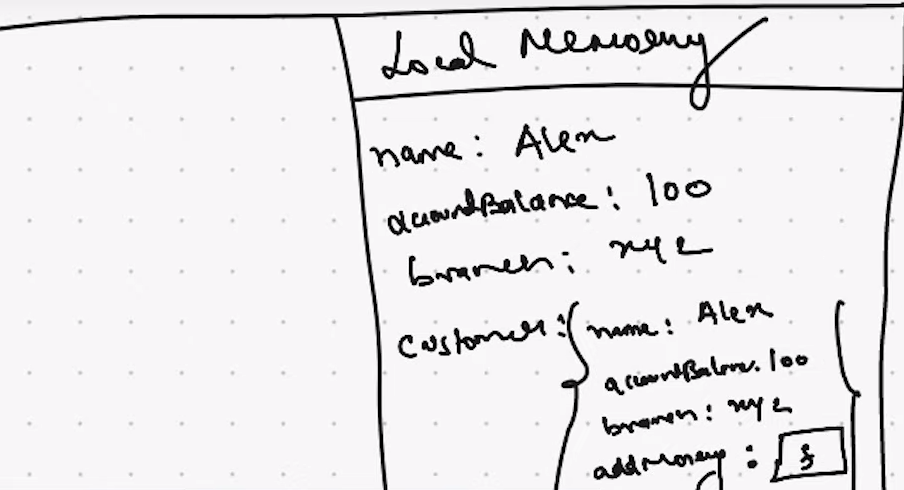 Local Memory
name: Alex
accountBalance: 100
branch: xyz
customer: { name: Alex
accountBalance: 100
branch: xyz
addMoney : f